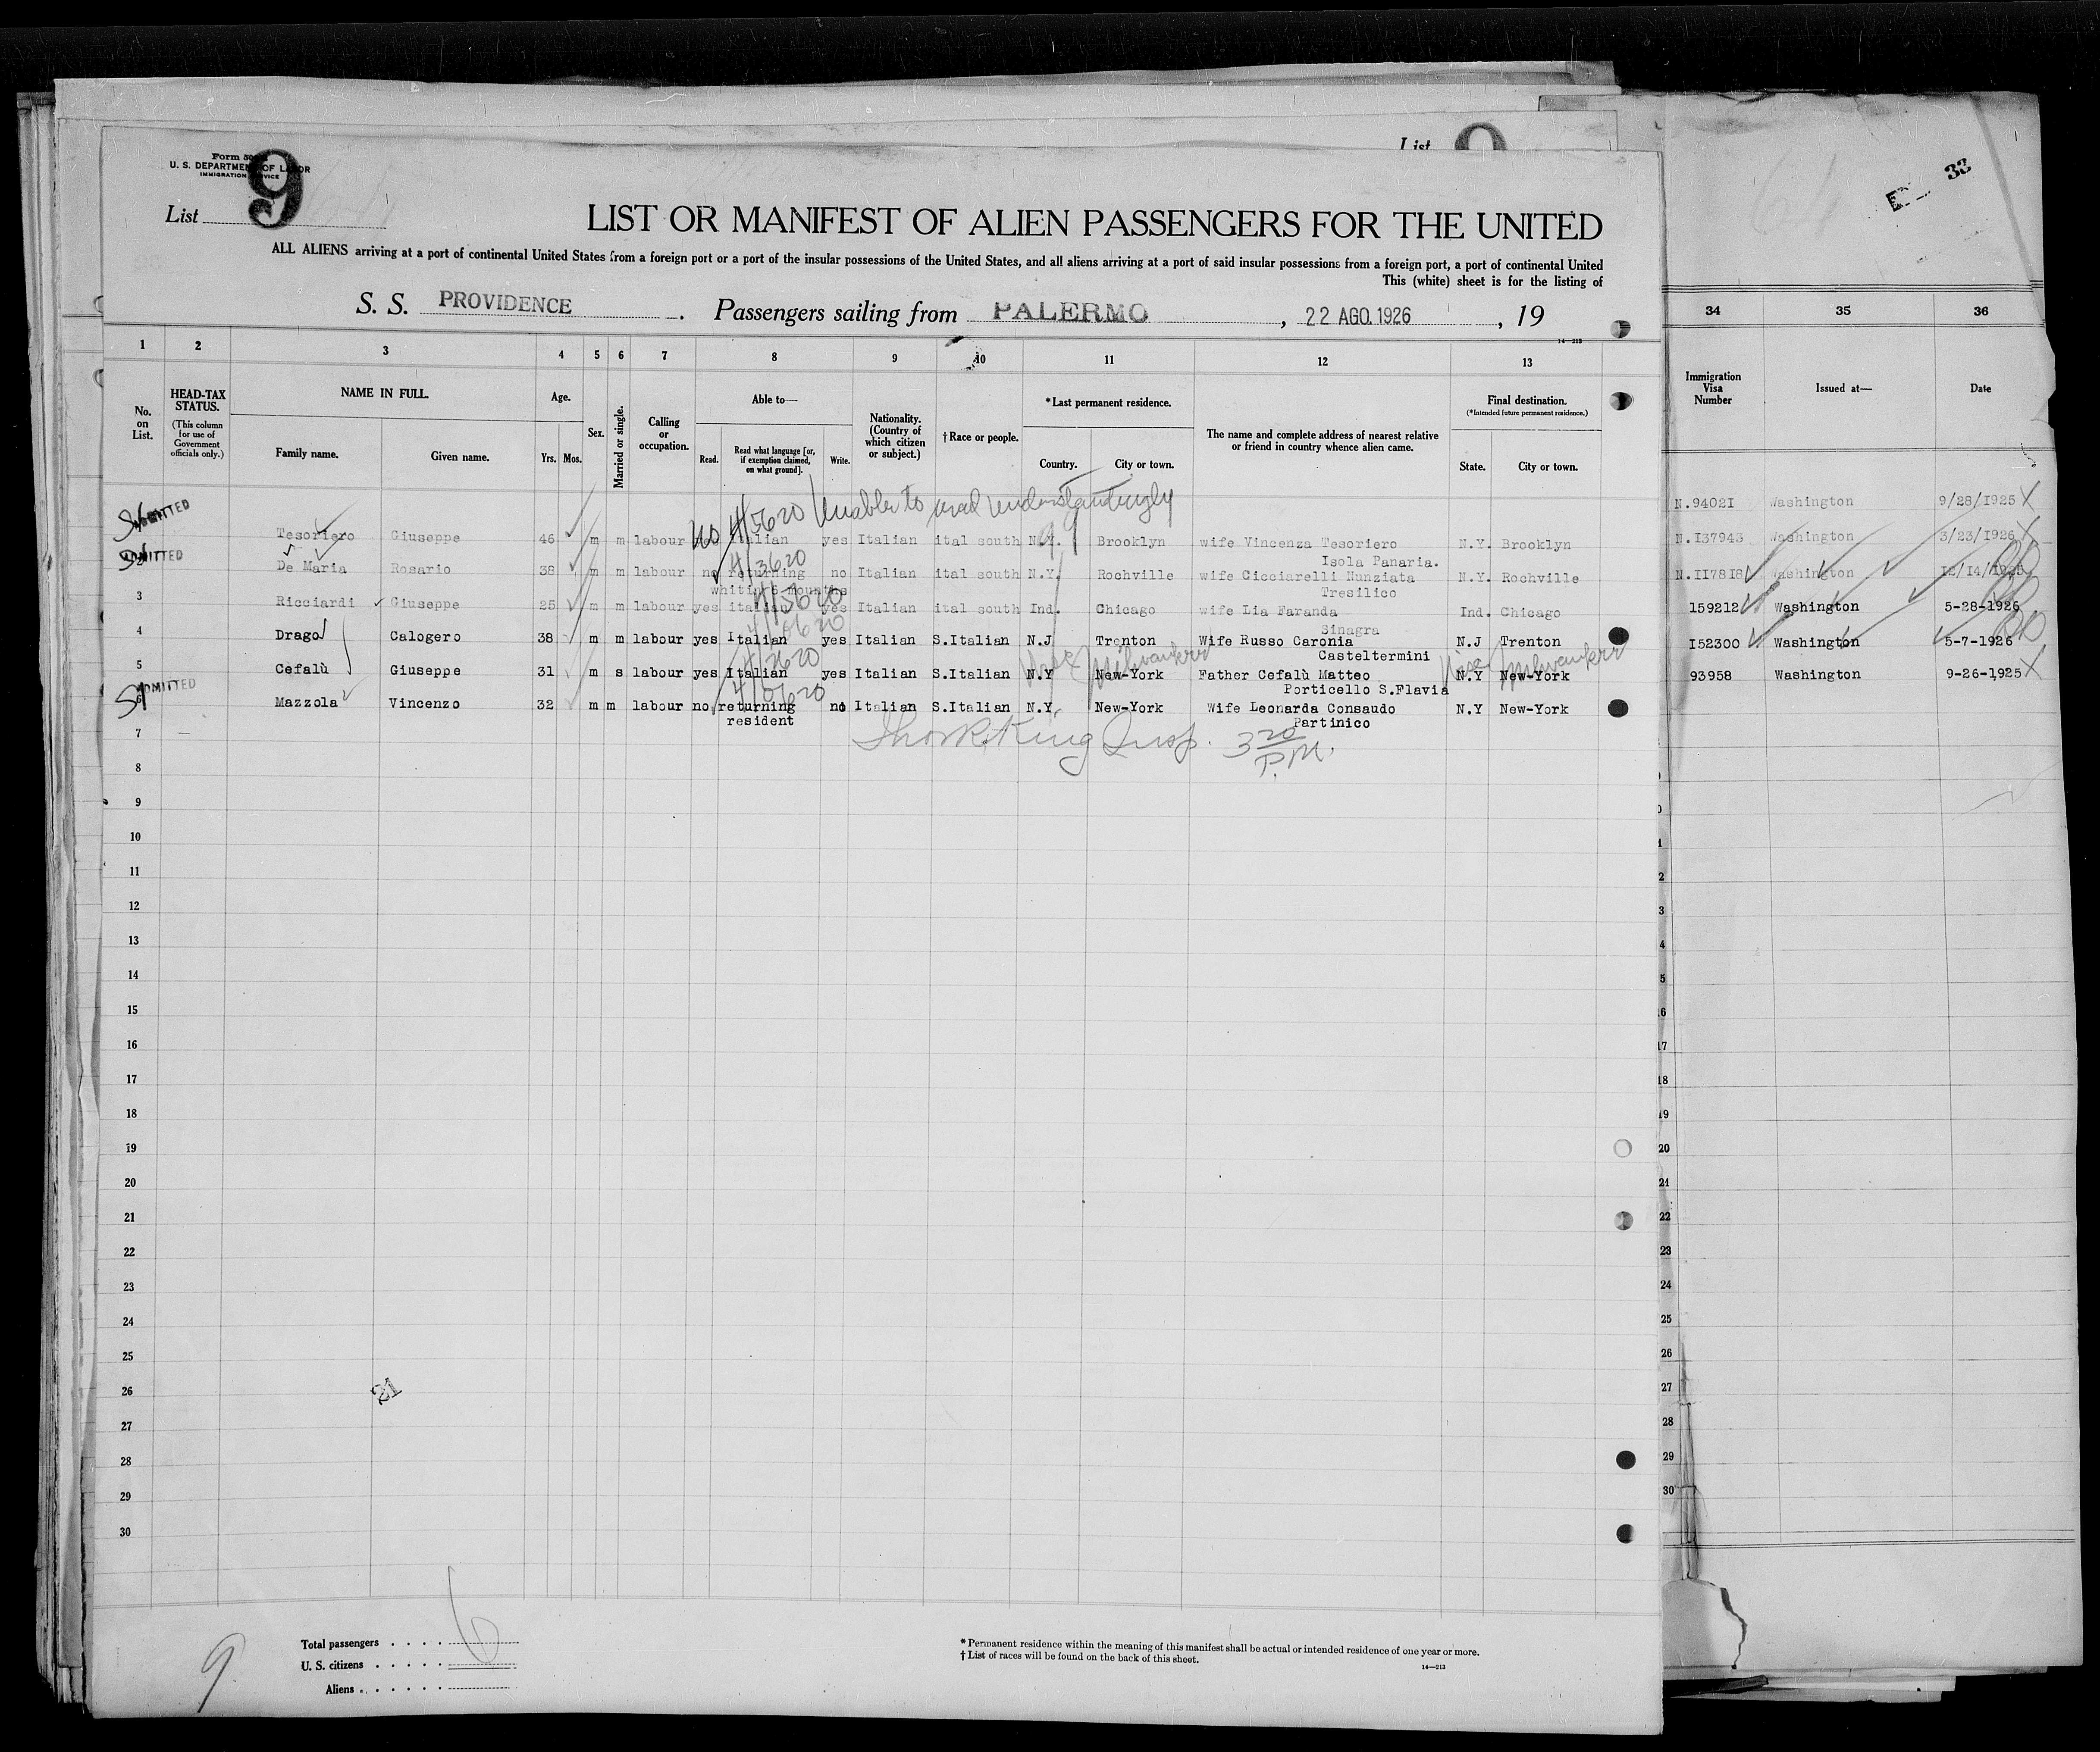 List
Form 50
U. S. DEPARTMENT OF LABOR
IMMIGRATION SERVICE
9
List
LIST OR MANIFEST OF ALIEN PASSENGERS FOR THE UNITED
ALL ALIENS arriving at a port of continental United States from a foreign port or a port of the insular possessions of the United States, and all aliens arriving at a port of said insular possessions from a foreign port, a port of continental United
This (white) sheet is for the listing of
S. S. PROVIDENCE. Passengers sailing from PALERMO, 22 AGO. 1926, 19
14—213
33
1 2 3 4 5 6 7 8 9 10 11 12 13 34 35 36
No. on List.
HEAD-TAX STATUS.
(This column for use of Government officials only.)
NAME IN FULL.
Family name. Given name.
Age.
Yrs. Mos.
Sex.
Married or single.
Calling or occupation.
Able to—
Read. Read what language [or, if exemption claimed, on what ground]. Write.
Nationality. (Country of which citizen or subject.)
† Race or people.
*Last permanent residence.
Country. City or town.
The name and complete address of nearest relative or friend in country whence alien came.
Final destination.
(*Intended future permanent residence.)
State. City or town.
Immigration Visa Number
Issued at—
Date
N.94021 Washington 9/28/1925 X
4/5620 Unable to read understandingly
ADMITTED Tesoriero Giuseppe 46 m m labour no Italian yes Italian ital south N.Y. Brooklyn wife Vincenza Tesoriero N.Y. Brooklyn N.I37943 Washington 3/23/1926 X
Isola Panaria.
4/3620
ADMITTED De Maria Rosario 38 m m labour no returning no Italian ital south N.Y. Rochville wife Cicciarelli Nunziata N.Y. Rochville N.II78I8 Washington I2/I4/1925
whitin 6 mounths Tresilico
3 Ricciardi Giuseppe 25 m m labour yes italian yes Italian ital south Ind. Chicago wife Lia Faranda Ind. Chicago 159212 Washington 5-28-1926
Sinagra
4 Drago Calogero 38 m m labour yes Italian yes Italian S.Italian N.J Trenton Wife Russo Caronia N.J Trenton I52300 Washington 5-7-1926
Casteltermini
Milwaukee Milwaukee
5 Cefalù Giuseppe 31 m s labour yes Italian yes Italian S.Italian N.Y New-York Father Cefalù Matteo N.Y New-York 93958 Washington 9-26-1925 X
Porticello S.Flavia
ADMITTED Mazzola Vincenzo 32 m m labour no returning no Italian S.Italian N.Y. New-York Wife Leonarda Consaudo N.Y New-York
resident Partinico
King Insp. 3 20 P.M.
7
8
9
10
11
12
13
14
15
16
17
18
19
20
21
22
23
24
25
26
27
28
29
30
21
Total passengers . . . . 6
U. S. citizens . . . . .
Aliens . . . . . .
9
* Permanent residence within the meaning of this manifest shall be actual or intended residence of one year or more.
† List of races will be found on the back of this sheet.
14—213